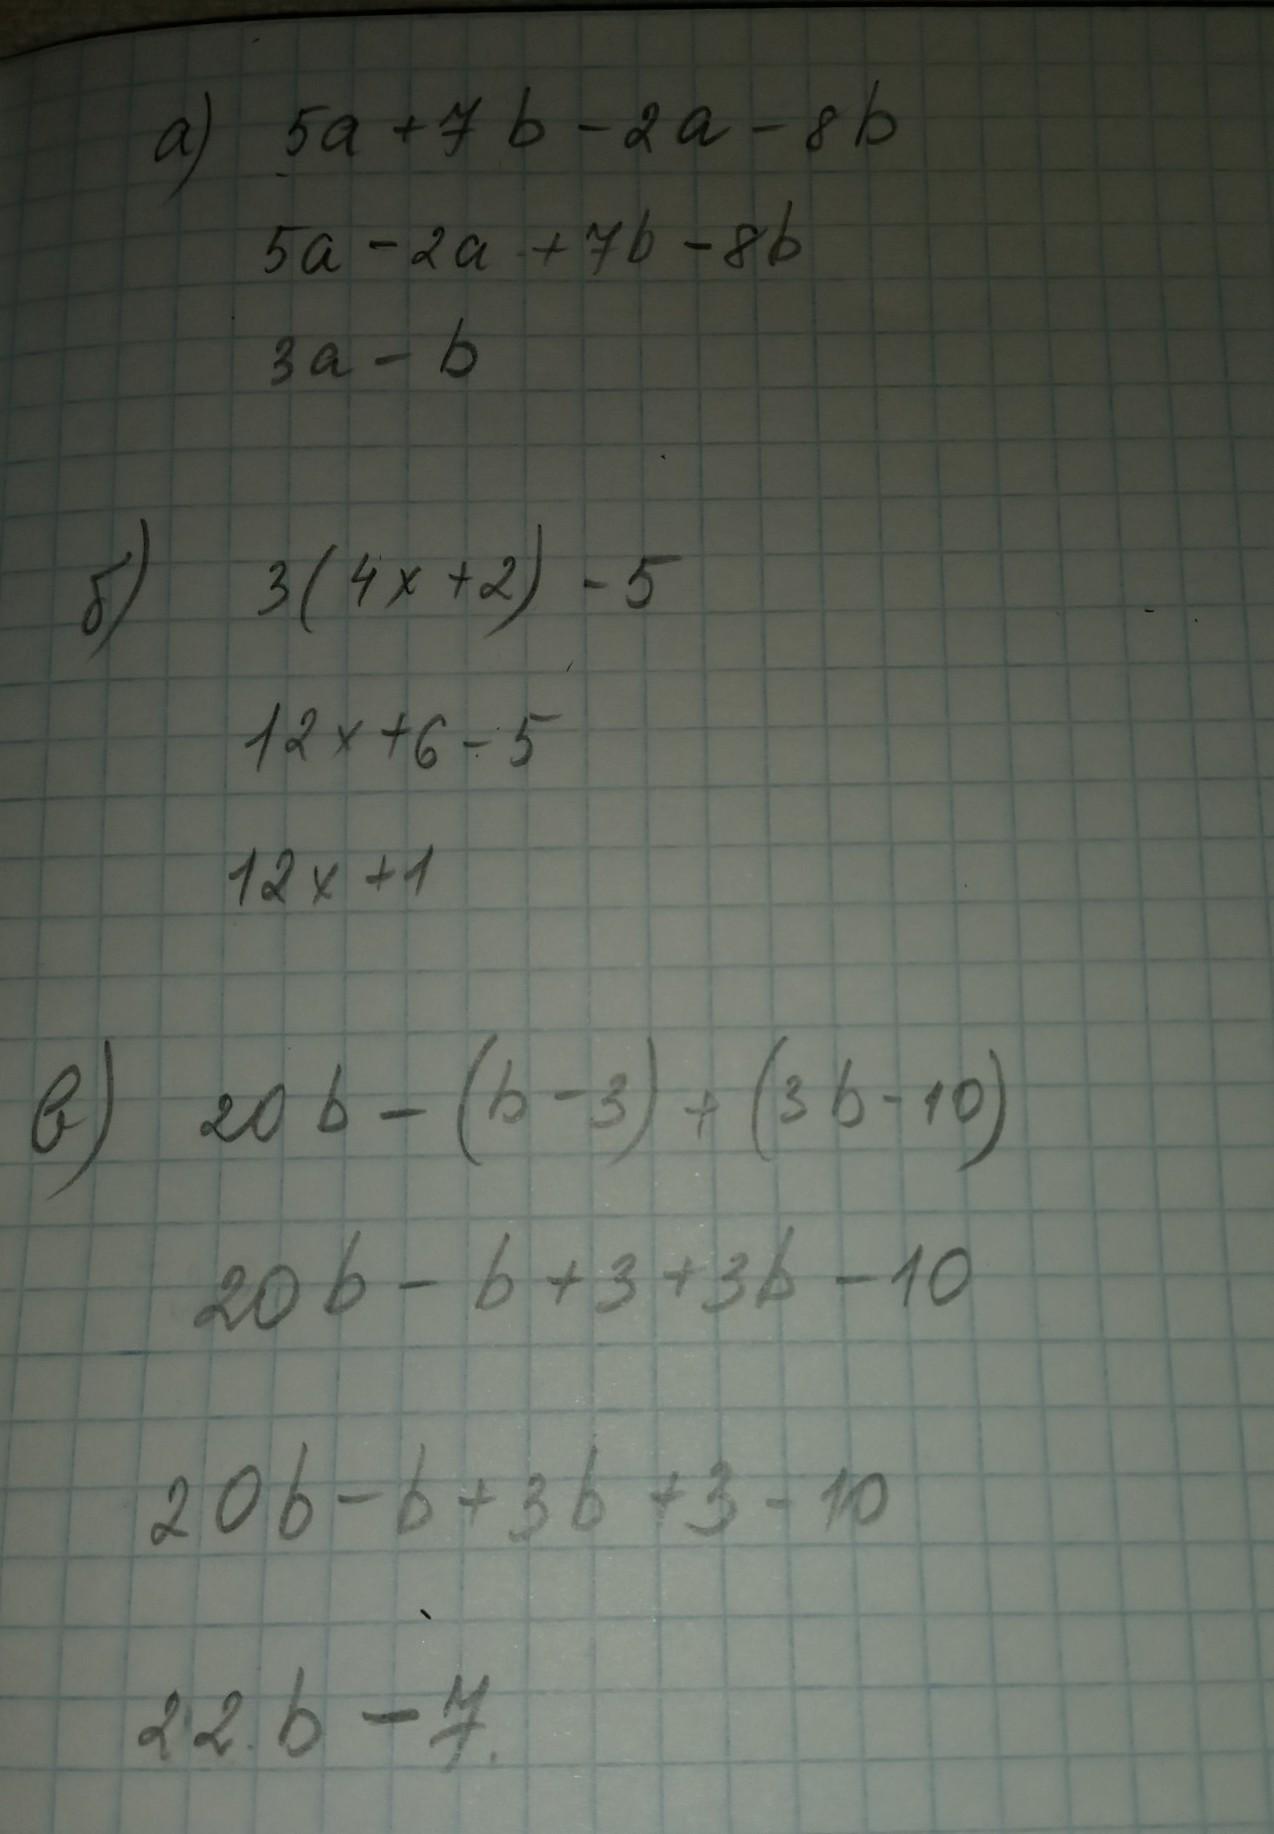 а) 5a + 7b - 2a - 8b
5a - 2a + 7b - 8b
3a - b
б) 3(4x + 2) - 5
12x + 6 - 5
12x + 1
в) 20b - (b - 3) + (3b - 10)
20b - b + 3 + 3b - 10
20b - b + 3b + 3 - 10
22b - 7.